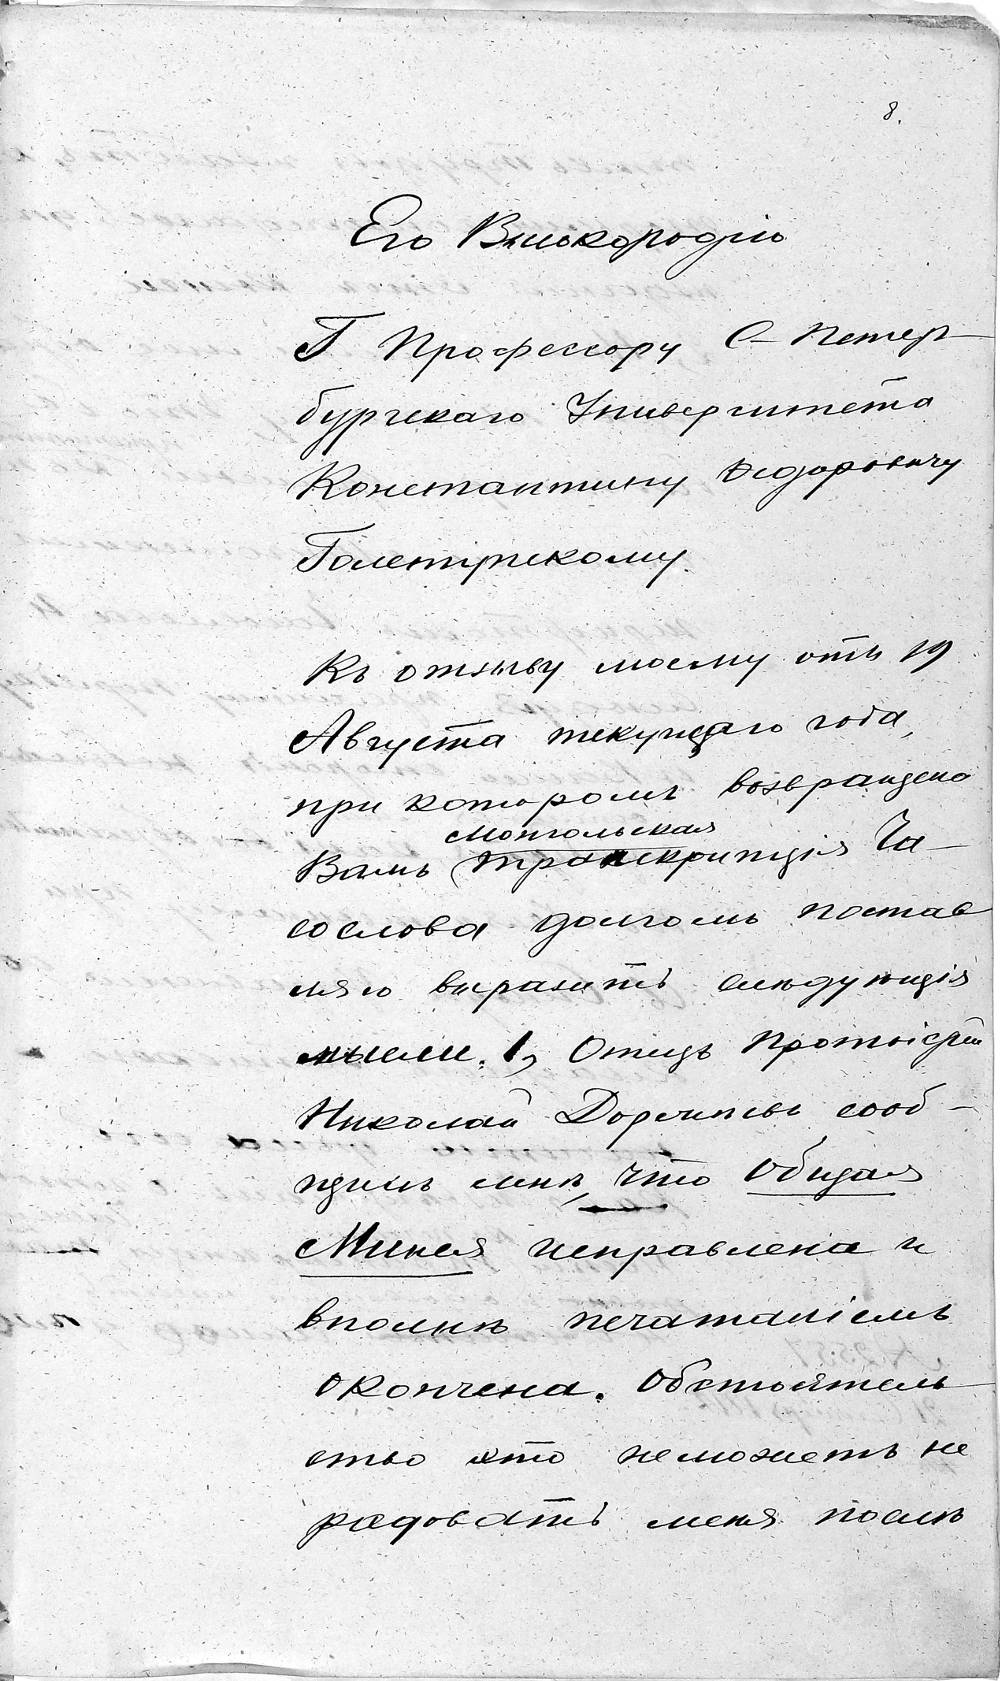 8.
Его Высокородію
Г Профессору С– Петер–
бургскаго Университета
Константину Ѳедоровичу
Голстунскому.
Къ отзыву моему отъ 19
Августа текущаго года,
при которомъ возвращено
монгольская
Вамъ (транскрипція Ча–
сослова долгомъ постав
ляю выразить слѣдующія
мысли. 1, Отецъ Протоіерей
Николай
сооб–
щилъ мнѣ, что Общая
Минея исправлена и
вполнѣ печатаніемъ
окончена. Обстоятель–
ство это неможетъ не
радовать меня послѣ